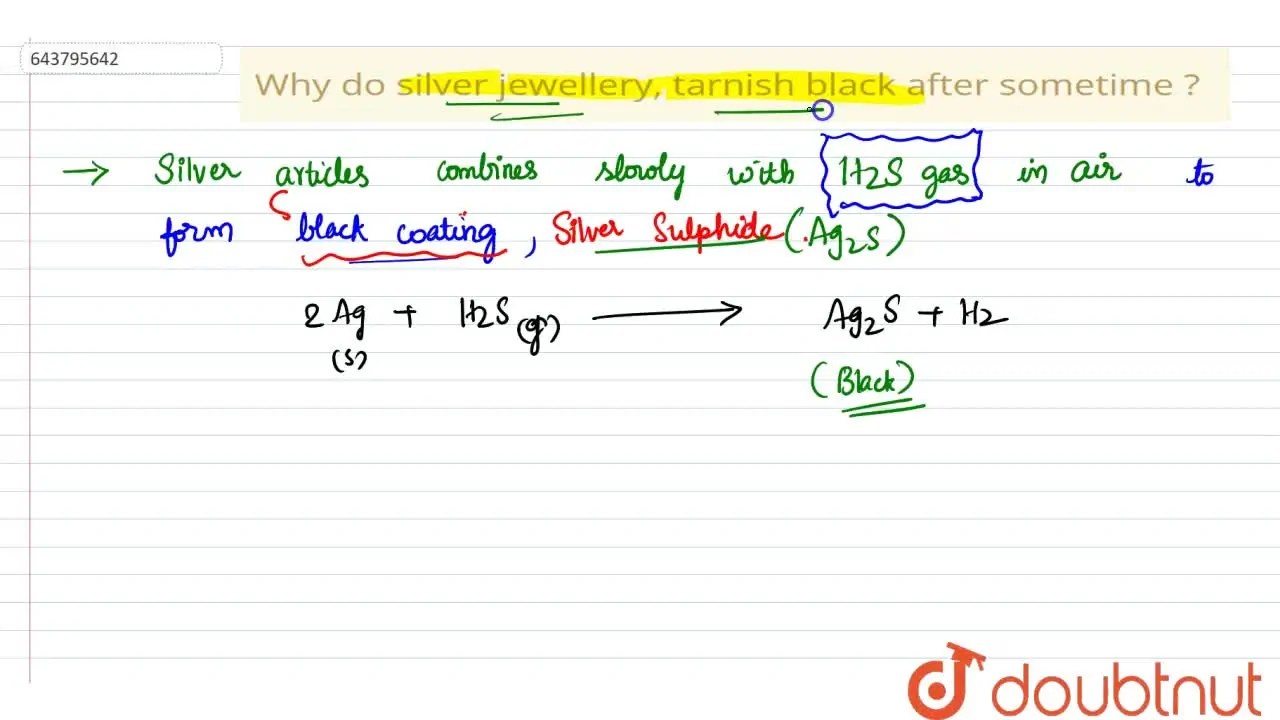 643795642
Why do silver jewellery, tarnish black after sometime ?
→ Silver articles combines slowly with H2S gas in air to
form black coating, Silver Sulphide (Ag2S)
2 Ag + H2S (g) → Ag2S + H2
(s)
(Black)
doubtnut